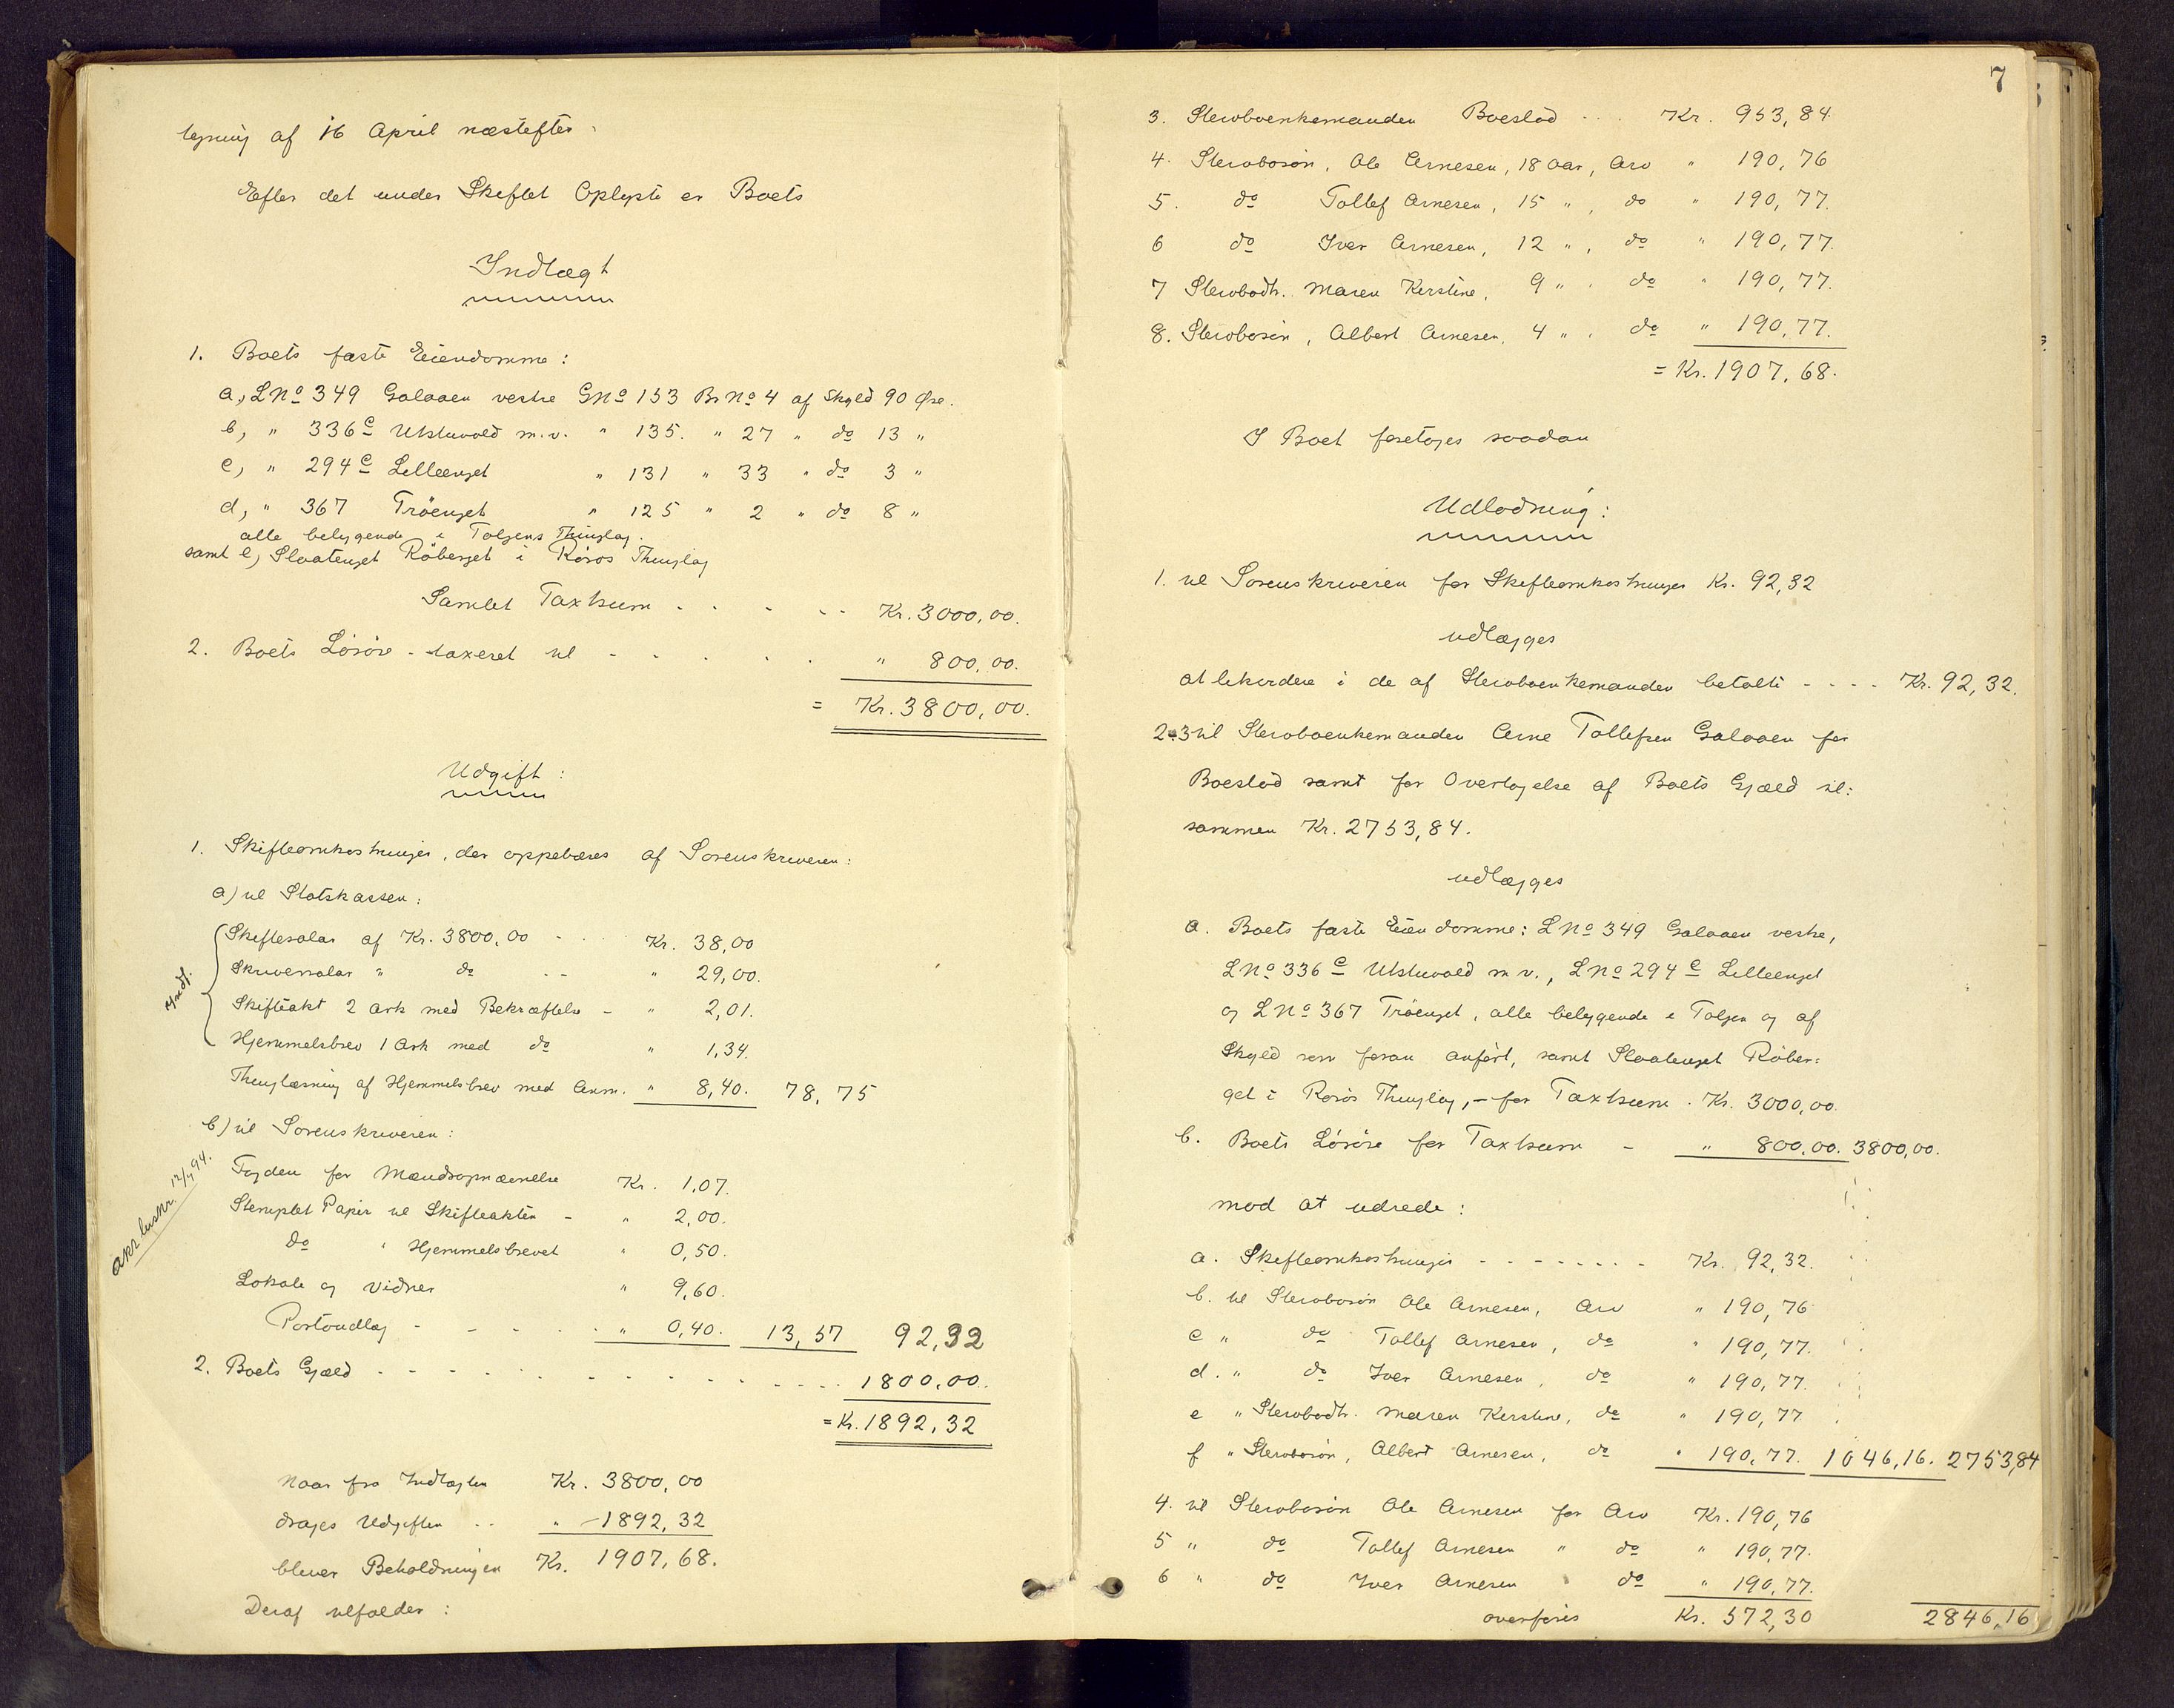 lysning af 16 April næstefter.
Efter det under Skiftet Oplyste er Boets
Indtægt
1. Boets faste Eiendomme:
a, LNº 349 Galaaen vestre GNº 153 BrNº 4 af Skyld 90 Øre.
b, " 336 c Utstuvold m.v. " 135. " 27 " do 13 "
c, " 294 c Lilleenget " 131 " 33 " do 3 "
d, " 367 Trøenget " 125 " 2 " do 8 "
alle beliggende i Tolgens Thinglag.
samt e) Slaatenget Røberget i Røros Thinglag
Samlet Taxtsum - - - - - Kr. 3000,00.
2. Boets Løsøre - taxeret til - - - - - " 800,00.
= Kr. 3800,00.
Udgift:
1. Skifteomkostninger, der oppebæres af Sorenskriveren:
a) til Statskassen:
Skiftesalar af Kr. 3800,00 - - - Kr. 38,00
Skriversalar " do - - " 29,00.
Skifteakt 2 Ark med Bekræftelse - " 2,01.
Hjemmelsbrev 1 Ark med do " 1,34.
Indt.
Thinglæsning af Hjemmelsbrev med Anm. " 8,40. 78,75
b) til Sorenskriveren:
Fogden for Mændsopnævnelse Kr. 1,07.
Stemplet Papir til Skifteakten - " 2,00.
do " Hjemmelsbrevet " 0,50.
Lokale og Vidner " 9,60.
12/7 94.
Portoudlæg - - - - - " 0,40. 13,57 92,32
2. Boets Gjæld - - - - - - - - - - 1800,00.
= Kr. 1892,32
Naar fra Indtægten Kr. 3800,00
drages Udgiften - - " 1892,32
bliver Beholdningen Kr. 1907,68.
Deraf tilfalder:
7
3. Stervboenkemanden Boeslod - - - Kr. 953,84.
4. Stervbosøn, Ole Arnesen, 18 Aar, Arv " 190,76
5. do Tollef Arnesen, 15 ", do " 190,77.
6 do Iver Arnesen, 12 ", do " 190,77.
7 Stervbodtr. Maren Kerstine, 9 ", do " 190,77.
8. Stervbosøn, Albert Arnesen, 4 ", do " 190,77.
= Kr. 1907,68.
I Boet foretages saadan
Udlodning:
1. til Sorenskriveren for Skifteomkostninger Kr. 92,32
udlægges
at likvidere i de af Stervboenkemanden betalte - - - - Kr. 92,32.
2-3 til Stervboenkemanden Arne Tollefsen Galaaen for
Boeslod samt for Overtagelse af Boets Gjæld til:
sammen Kr. 2753,84.
udlægges
a. Boets faste Eiendomme: LNº 349 Galaaen vestre,
LNº 336 c Utstuvold m.v., LNº 294 c Lilleenget
og LNº 367 Trøenget, alle beliggende i Tolgen og af
Skyld som foran anført, samt Slaatenget Røber:
get i Røros Thinglag, - for Taxtsum . Kr. 3000,00.
b. Boets Løsøre for Taxtsum - " 800,00. 3800,00.
mod at udrede:
a. Skifteomkostninger - - - - - - - Kr. 92,32.
b. til Stervbosøn Ole Arnesen, Arv " 190,76
c " do Tollef Arnesen, do " 190,77.
d. " do Iver Arnesen, do " 190,77.
e " Stervbodtr. Maren Kerstine, do " 190,77
f " Stervbosøn, Albert Arnesen, do " 190,77. 1046,16. 2753,84
4. til Stervbosøn Ole Arnesen for Arv Kr. 190,76
5 " do Tollef Arnesen " do " 190,77.
6 " do Iver Arnesen " do " 190,77.
overføres Kr. 572,30 2846,16